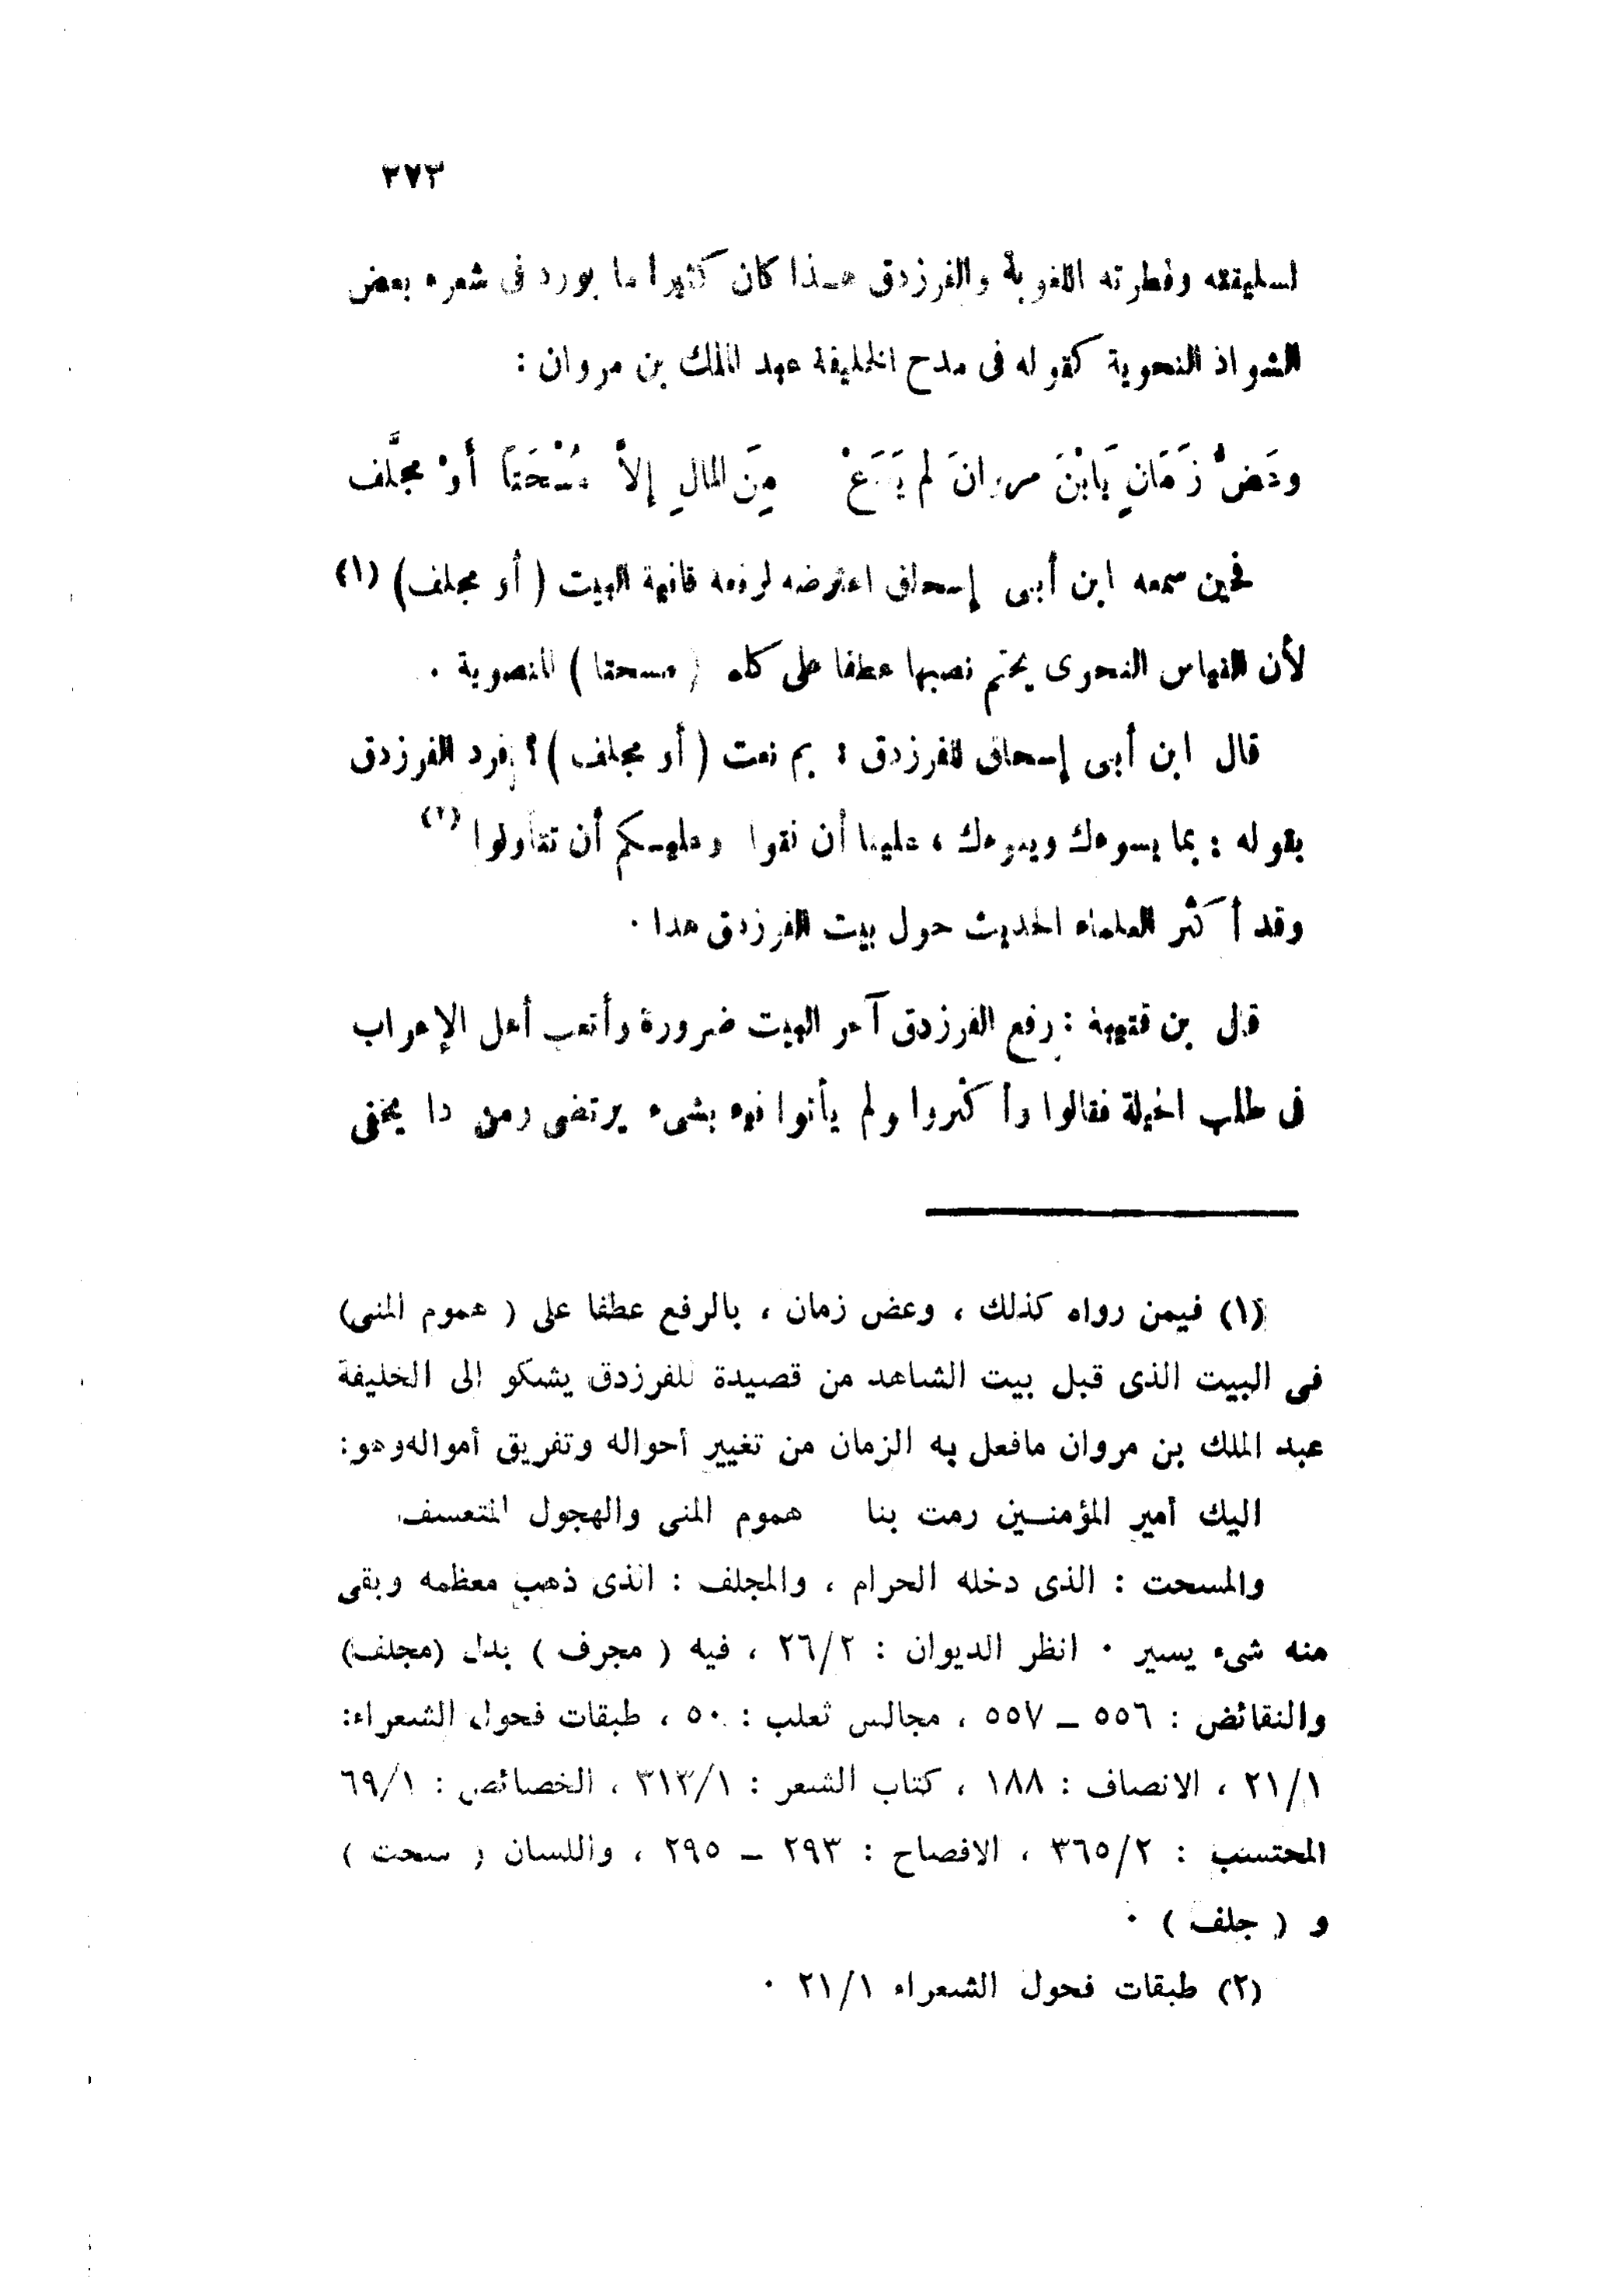 ٢٧٣
لسليقته وفطرته اللغوية والفرزدق هـذا كان كثيرا ما يورد فى شعره بعض
الشواذ النحوية كقوله فى مدح الخليفة عبد الملك بن مروان :
وعَضُّ زَمَانٍ يَابْنَ مروانَ لم يَدَعْ مِنَ المالِ إلاَّ مُسْحَتاً أوْ مجلَّف
فحين سمعه ابن أبى إسحاق اعترضه لرفعه قافية البيت ( أو مجلف ) (١)
لأن القياس النحوى يحتم نصبها عطفا على كلمه ( مسحتا ) المنصوبة .
قال ابن أبى إسحاق للفرزدق : بم نعت ( أو مجلف ) ؟ فرد الفرزدق
بقوله : بما يسوءك وينوءك ، علينا أن نقوا وعليـكم أن تتأولوا (٢)
وقد أكثر العلماء الحديث حول بيت الفرزدق هذا .
قال بن قتيبة : رفع الفرزدق آخر البيت ضرورة وأتعب أهل الإعراب
فى طلب الحيلة فقالوا وأكثروا ولم يأتوا فيه بشىء يرتضى ومن ذا يخفى
(١) فيمن رواه كذلك ، وعض زمان ، بالرفع عطفا على ( هموم المنى)
فى البيت الذى قبل بيت الشاهد من قصيدة للفرزدق يشكو الى الخليفة
عبد الملك بن مروان مافعل به الزمان من تغيير أحواله وتفريق أمواله وهو:
اليك أمير المؤمنــين رمت بنا هموم المنى والهجول المتعسف
والمسحت : الذى دخله الحرام ، والمجلف : الذى ذهب معظمه وبقى
منه شىء يسير ٠ انظر الديوان : ٢٦/٢ ، فيه ( مجرف ) بدل (مجلف)
والنقائض : ٥٥٦ ـ ٥٥٧ ، مجالس ثعلب : ٥٠ ، طبقات فحول الشعراء:
٢١/١ ، الانصاف : ١٨٨ ، كتاب الشعر : ٣١٣/١ ، الخصائص : ٦٩/١
المحتسب : ٣٦٥/٢ ، الافصاح : ٢٩٣ ـ ٢٩٥ ، واللسان ( سحت )
و ( جلف ) ٠
(٢) طبقات فحول الشعراء ٢١/١ ٠